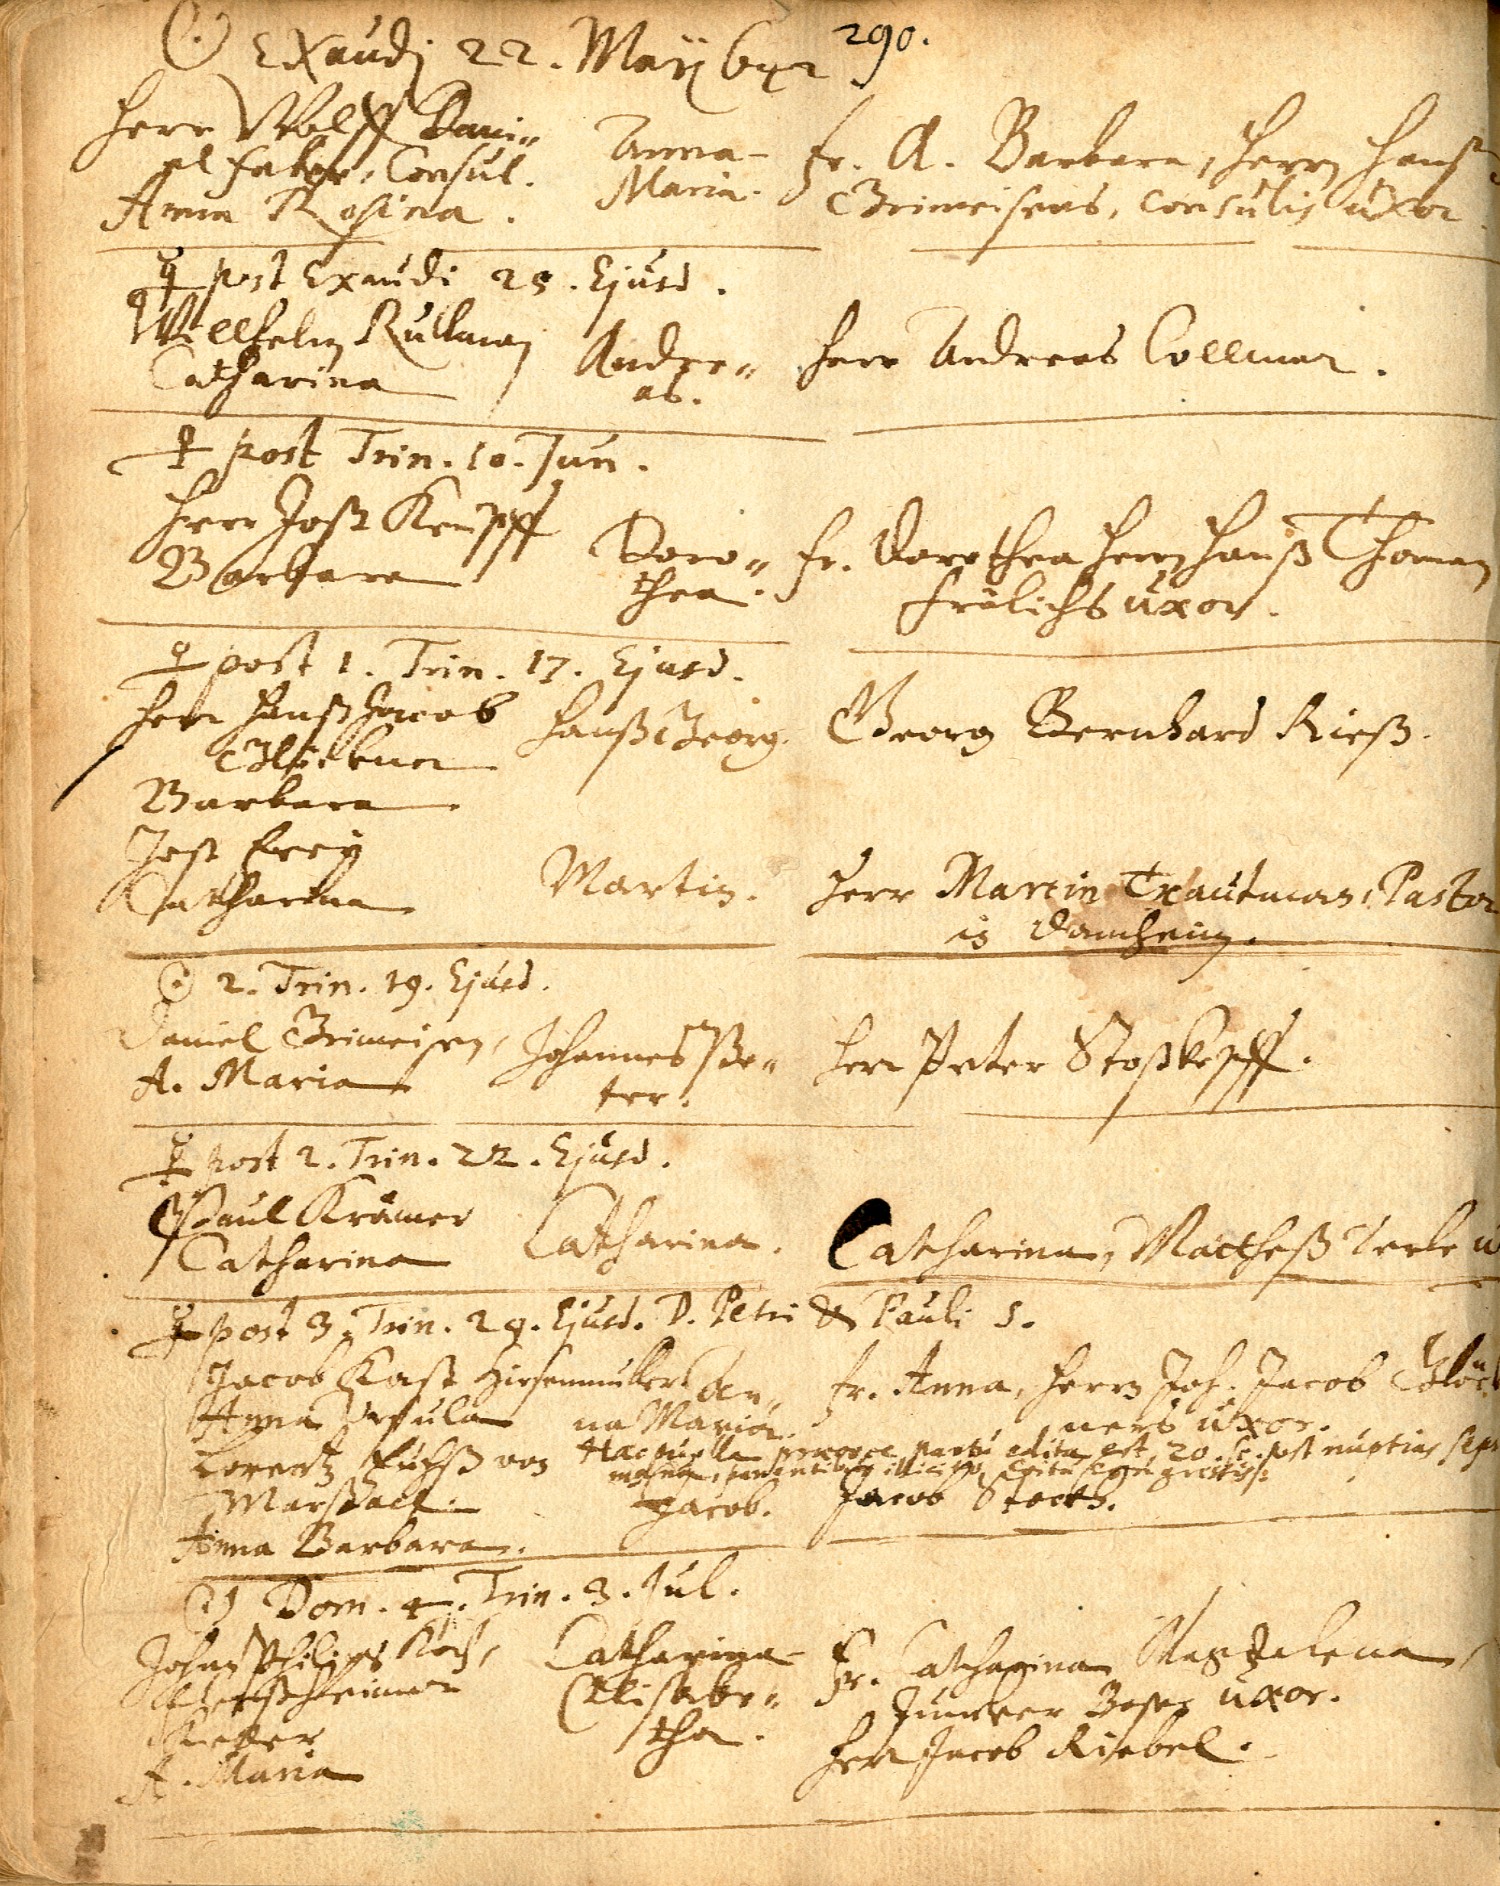 ☉ Exaudj 22. Maÿ 642
290.
Herr Wolff Dani=
el Faber, Consul.
Anna Rosina.
Anna
Maria.
Fr. A. Barbara, Herrn Hanß
Grimeisens, consulis uxor
☿ post Exaudi 25. Ejusd.
Wilhelm Rullman
Catharina
Andre=
as.
Herr Andreas Collmar.
post Trin. 10. Jun.
Herr Jost
Barbara
Doro=
thea.
Fr. Dorothea Herrn Hanß Thoman
Frölichs uxor.
♀ post 1. Trin. 17. Ejusd.
Herr Hanß Jacob
Glöckner
Barbara
Hanß Georg.
Georg Bernhard Rieß.
Jost Frey
Catharina
Martin.
Herr Martin Trautman, Pastor
in Damheim.
☉ 2. Trin. 19. Ejusd.
Daniel Grimeisen,
A. Maria
Johannes Pe=
ter.
Herr Peter Stoßkopff.
☿ post 2. Trin. 22. Ejusd.
Paul Krämer
Catharina
Catharina.
Catharina, Mattheß
☿ post 3. Trin. 29. Ejusd. D. Petri & Pauli
Jacob Kast
Anna Ursula
An=
na Maria.
Fr. Anna, Herrn Joh. Jacob Glöck
ners uxor.
Haec puella partu edita est, 20. post nuptias
Lorentz Fuchß von
Anna Barbara.
Jacob.
Jacob Stocks.
☉ Dom. 4. Trin. 3. Jul.
Johan Philips Koch,
A. Maria
Catharina
Elisabe=
tha.
Fr. Catharina Magdalena,
Juncker uxor.
Herr Jacob Riebel.